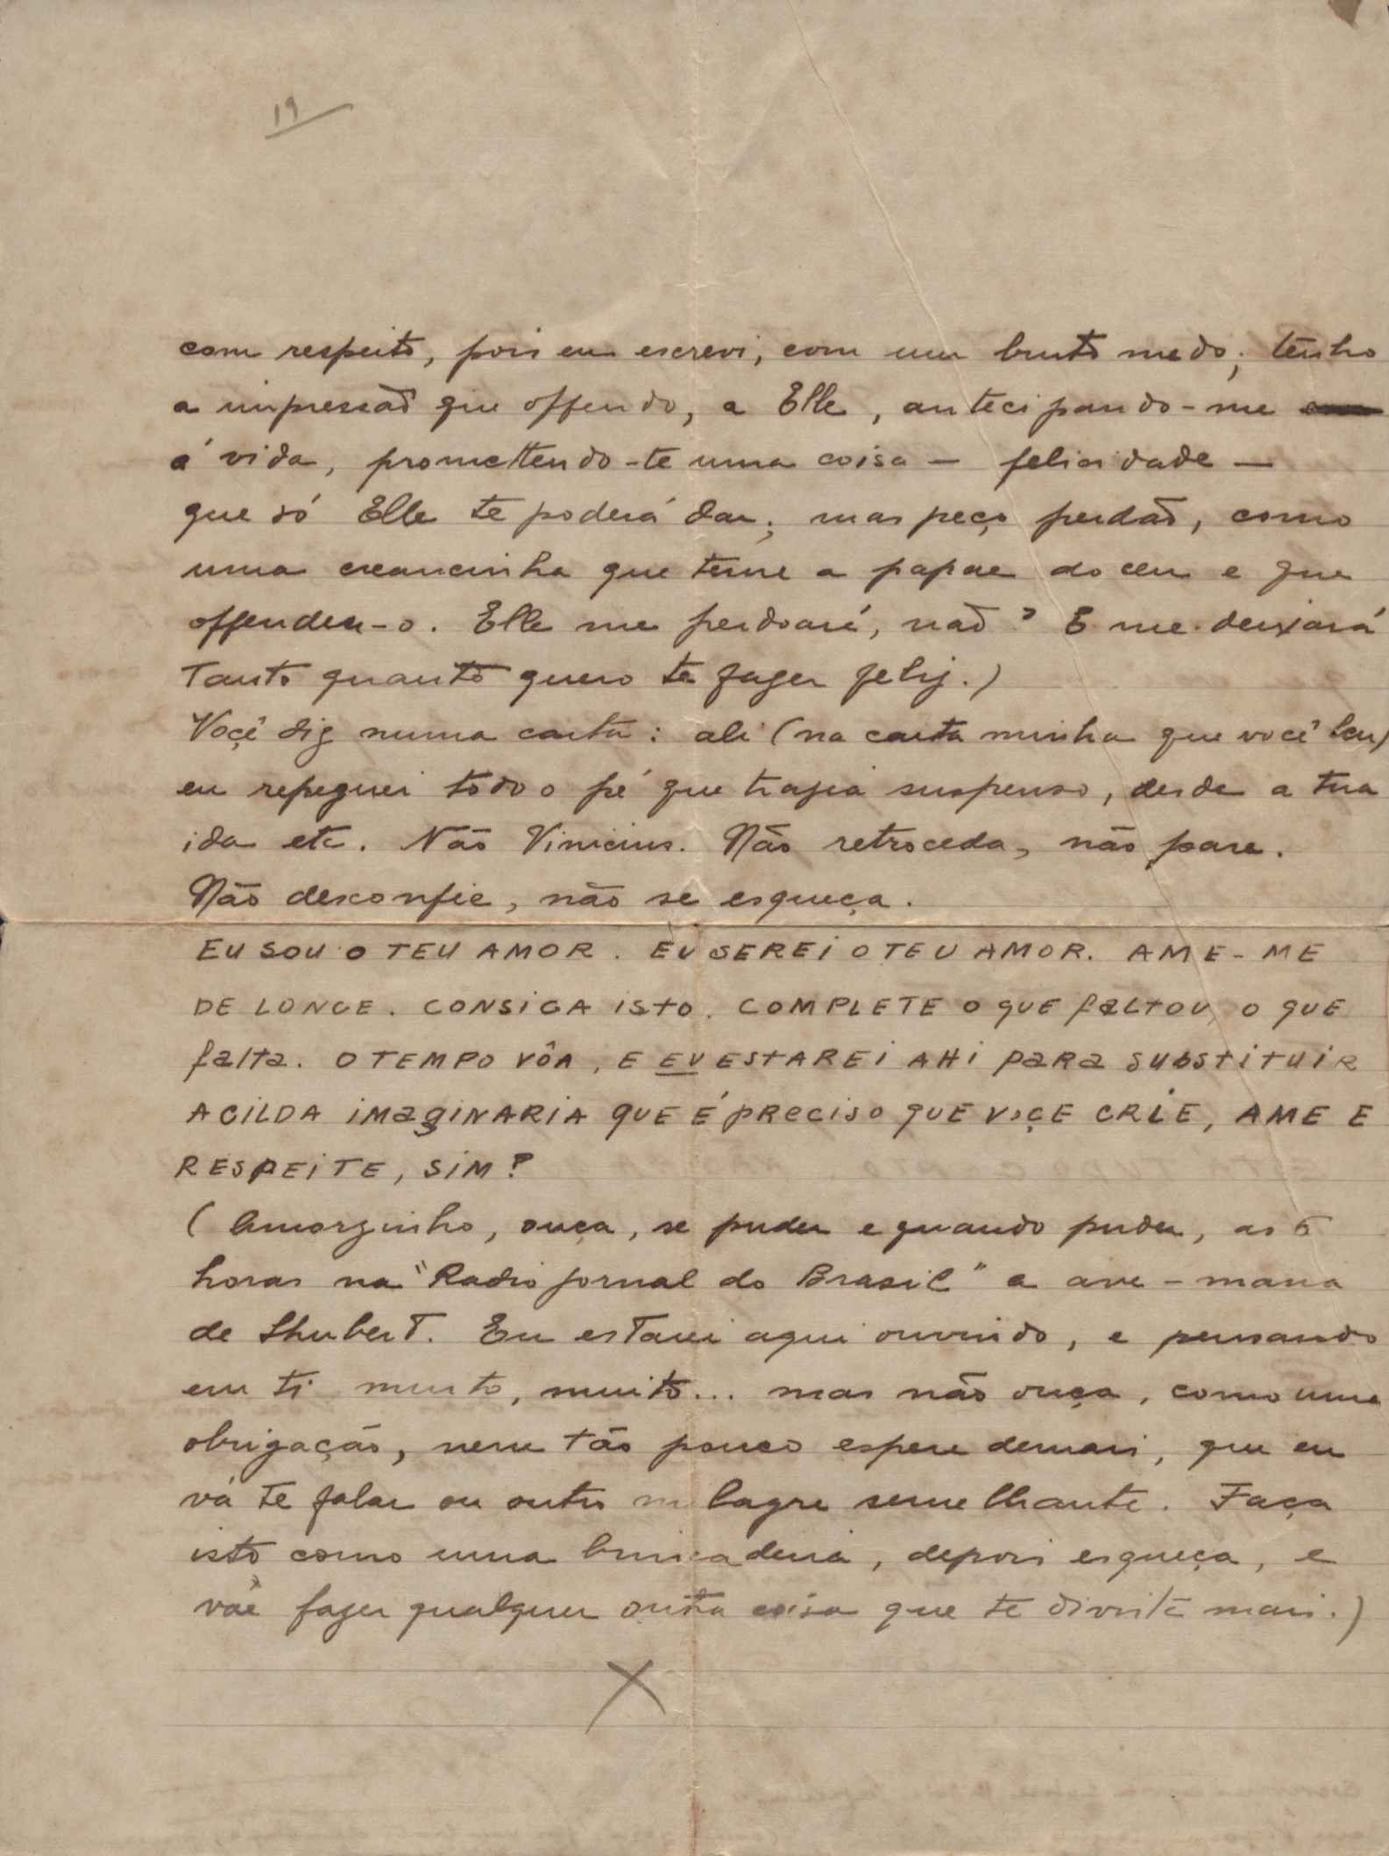 19
com respeito, pois eu escrevi, com um bruto medo; tenho
a impressaõ que offendo, a Elle, antecipando-me
á vida, promettendo-te uma coisa — felicidade —
que só Elle te poderá dar; mas peço perdaõ, como
uma creancinha que teme a papae do ceu e que
offendeu-o. Elle me perdoará, naõ? E me deixará
tanto quanto quero te fazer feliz.)
Voçê diz numa carta: ali (na carta minha que você leu)
eu repeguei todo o pé que trazia suspenso, desde a tua
ida etc. Não Vinicius. Não retroceda, não pare.
Não desconfie, não se esqueça.
EU SOU O TEU AMOR. EU SEREI O TEU AMOR. AME-ME
DE LONGE. CONSIGA ISTO. COMPLETE O QUE FALTOU, O QUE
falta. O TEMPO VÔA, E EU ESTAREI AHI PARA SUBSTITUIR
A CILDA IMAGINARIA QUE É PRECISO QUE VOÇE CRIE, AME E
RESPEITE, SIM?
(Amorzinho, ouça, se puder e quando puder, as 6
horas na "Radio Jornal do Brasil" a ave-maria
de Shubert. Eu estarei aqui ouvindo, e pensando
em ti muito, muito... mas não ouça, como uma
obrigação, nem tão pouco espere demais, que eu
vá te falar ou outro milagre semelhante. Faça
isto como uma brincadeira, depois esqueça, e
váe fazer qualquer outra coisa que te divirta mais.)
X